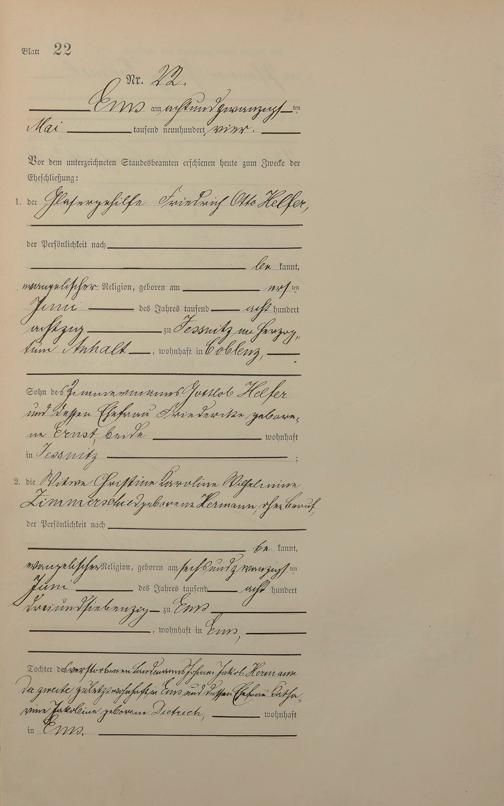 Blatt 22
Nr. 22.
Ems am achtundzwanzigsten
Mai tausend neunhundert vier.
Vor dem unterzeichneten Standesbeamten erschienen heute zum Zwecke der
Eheschließung:
1. der Glasergehilfe Friedrich Otto Helfer,
der Persönlichkeit nach
be kannt,
evangelischer Religion, geboren am ersten
Juni des Jahres tausend acht hundert
achtzig zu Jessnitz im Herzog-
tum Anhalt, wohnhaft in Coblenz,
Sohn des Zimmermanns Gottlob Helfer
und dessen Ehefrau Friedericke gebore-
ne Ernst, beide wohnhaft
in Jessnitz ;
2. die Witwe Christine Karoline Wilhelmine
Zimmerschied geborene Hermann, ohne Beruf,
der Persönlichkeit nach
be kannt,
evangelischer Religion, geboren am sechsundzwanzigsten
Juni des Jahres tausend acht hundert
dreiundsiebenzig zu Ems
, wohnhaft in Ems,
Tochter des verstorbenen Johann Jakob Hermann
zuletzt wohnhaft in Ems und dessen Ehefrau Katha-
rine geborene Dietrich, wohnhaft
in Ems.